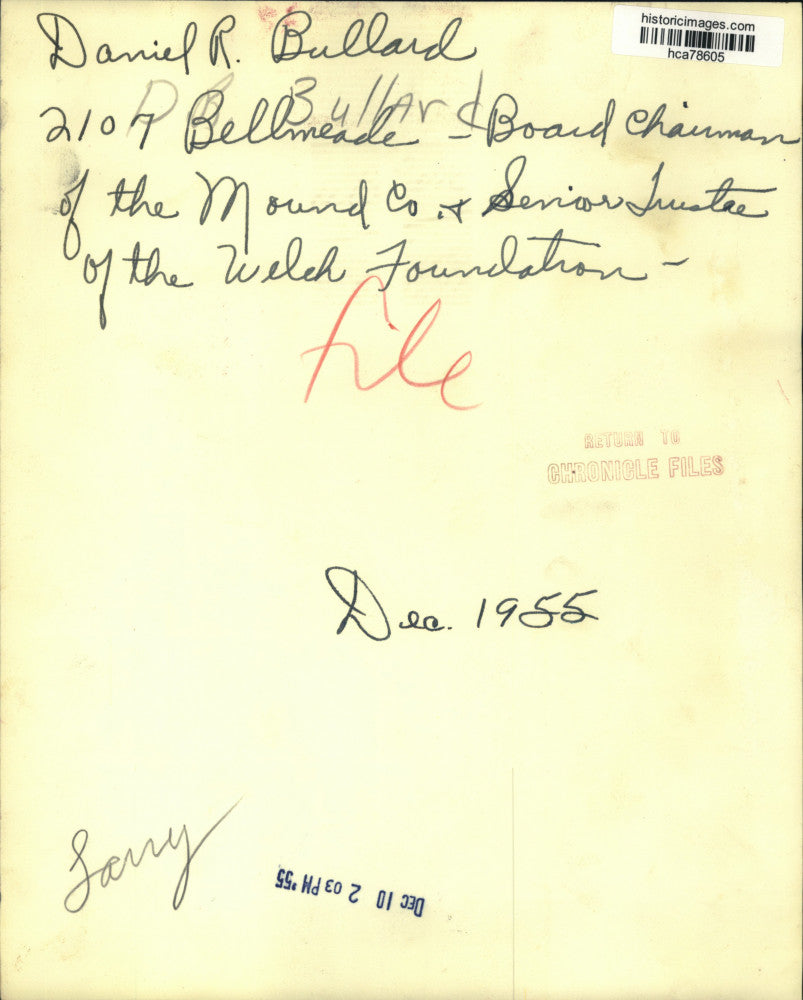 historicimages.com
hca78605
Daniel R. Bullard
D R Bullard
2107 Bellmeade - Board Chairman
of the Mound Co. & Senior Trustee
of the Welch Foundation -
file
RETURN TO
CHRONICLE FILES
Dec. 1955
Larry
DEC 10 2 03 PM '55